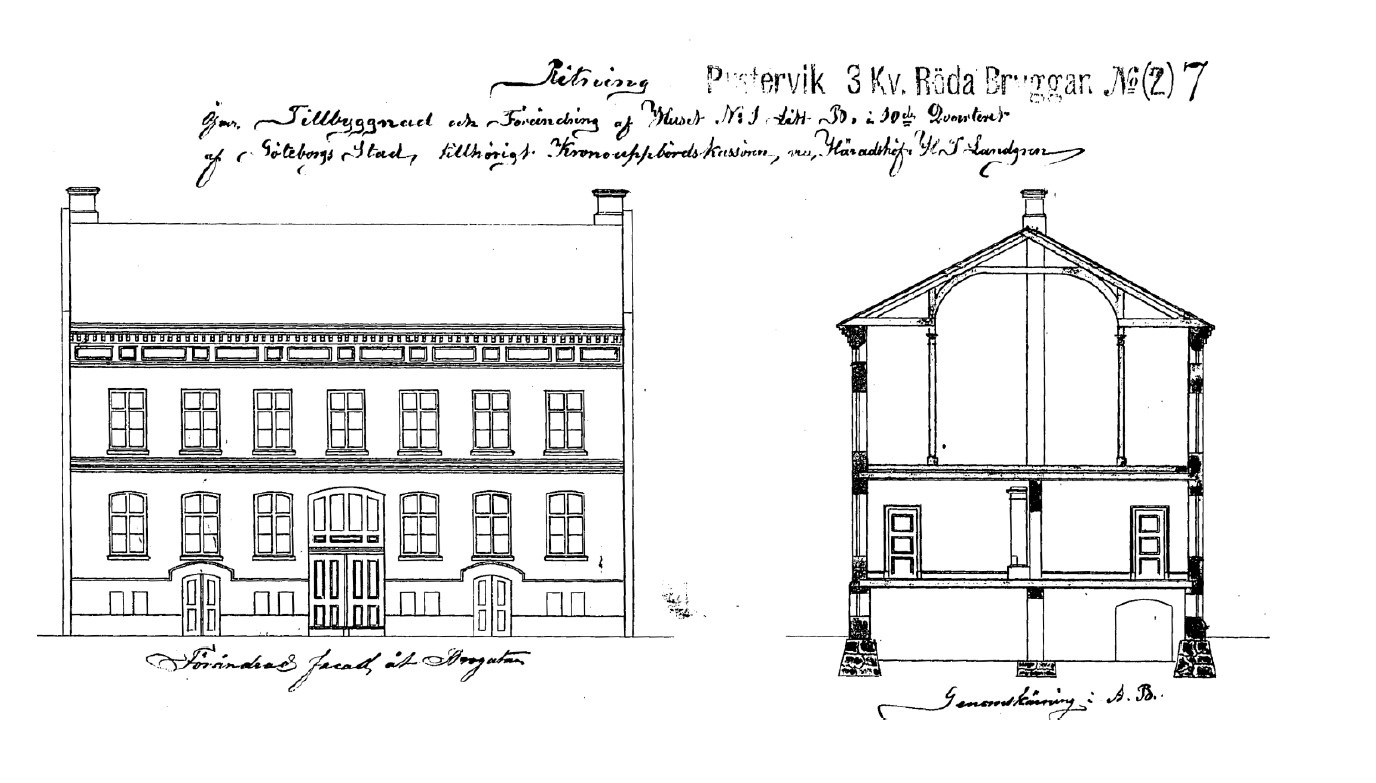 Ritning Pustervik 3 Kv. Röda Bryggan № (2) 7
öfver Tillbyggnad och Förändring af Huset N:o 1 Litt B. i 10de Qvarteret
af Göteborgs Stad, tillhörigt Kronouppbördskassören, Häradshöf. Landgren
Förändrad facad åt Brogatan
Genomskärning i A. B.